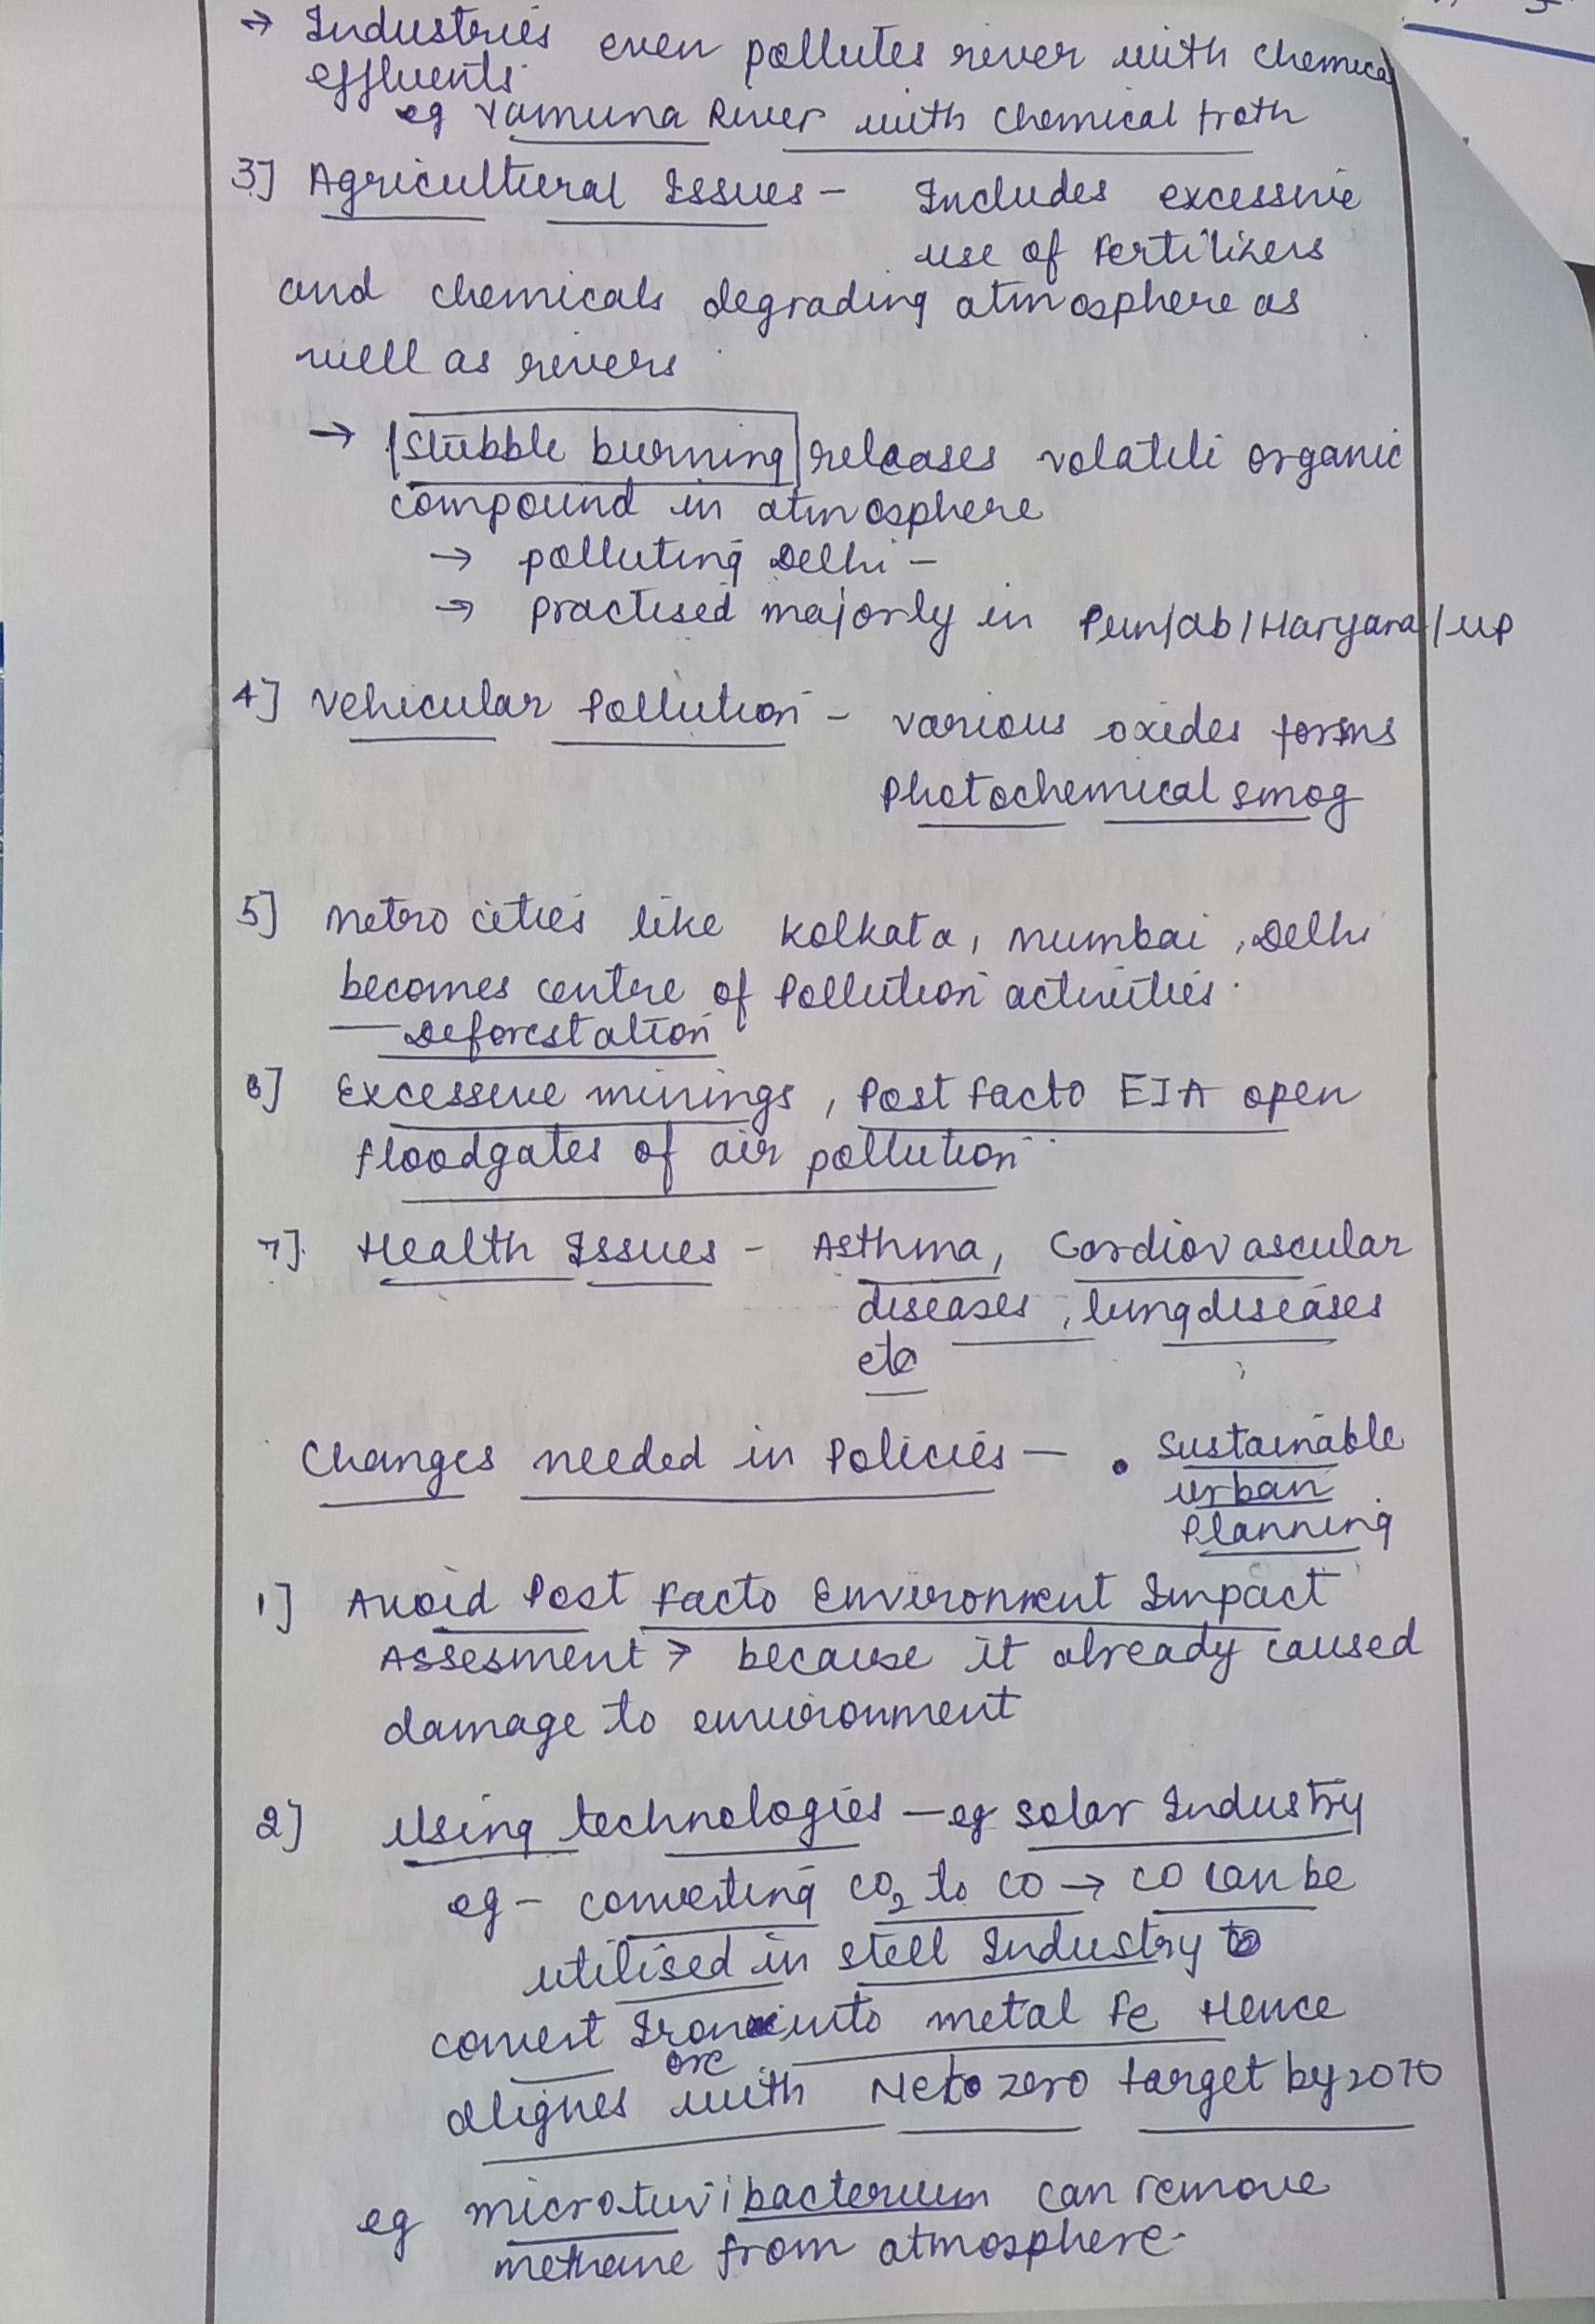 → Industries even pollutes river with chemical
effluents
eg Yamuna River with chemical froth
3] Agricultural Issues – Includes excessive
use of Fertilizers
and chemicals degrading atmosphere as
well as rivers
→ Stubble burning releases volatile organic
compound in atmosphere
→ polluting Delhi –
→ practised majorly in Punjab/Haryana/UP
4] Vehicular Pollution – various oxides forms
Photochemical smog
5] Metro cities like Kolkata, Mumbai, Delhi
becomes centre of Pollution activities.
— Deforestation
6] Excessive minings, Post facto EIA open
floodgates of air pollution
7] Health Issues – Asthma, Cardiovascular
diseases, lung diseases
etc
Changes needed in Policies – • Sustainable
urban
Planning
1] Avoid Post Facto Environment Impact
Assesment → because it already caused
damage to environment
2] Using technologies – eg Solar Industry
eg – converting CO₂ to CO → CO can be
utilised in steel Industry to
convert Iron ore into metal Fe Hence
alignes with Neto zero target by 2070
eg bacterium can remove
methane from atmosphere.